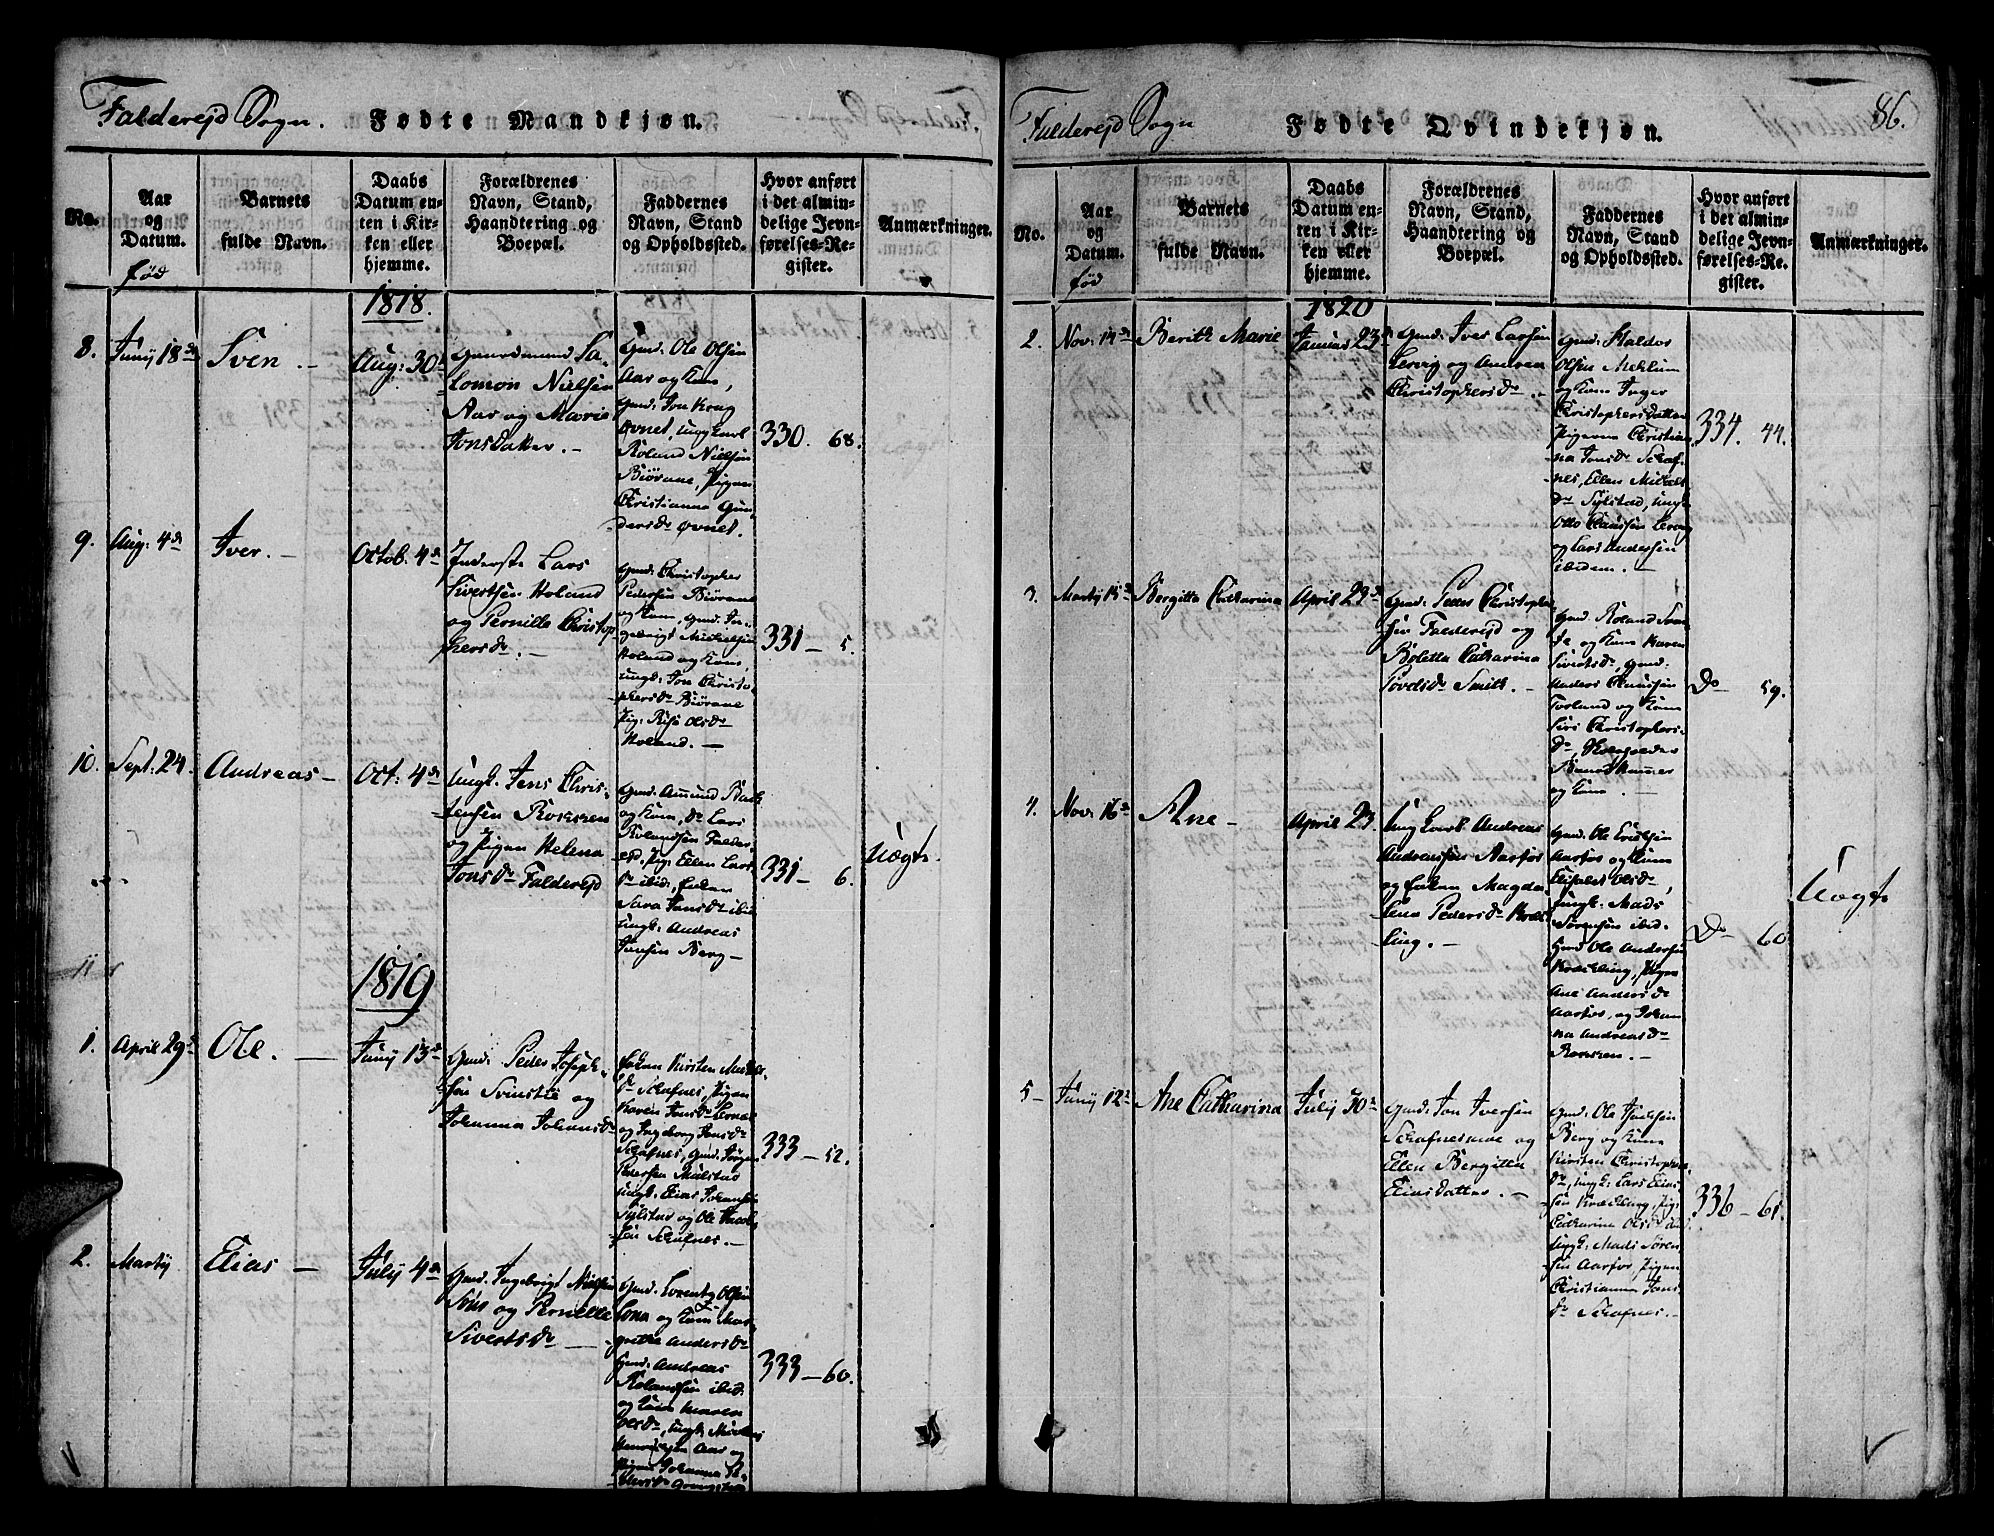 Falderejd Sogn. Fødte Mandkjøn.
No.
Aar
og
Datum.
fød
Barnets
fulde Navn.
Daabs
Datum en-
ten i Kir-
ken eller
hjemme.
Forældrenes
Navn, Stand,
Haandtering og
Boepæl.
Faddernes
Navn, Stand
og Opholdssted.
Hvor anført
i det almin-
delige Jevn-
førelses-Re-
gister.
Anmærkninger.
1818.
8. Juny 18de Sven. Aug: 30de
Gaardmand Sa-
lomon Nielsen
Aar og Maria
Jonsdatter.
Gmd. Ole Olsen
Aar og Kone,
Gmd: Jon Krag
Øvnet, ungkarl
Roland Nielsen
Biørane, Pigen
Christianna Gun-
dersdr Øvnet.
330. 68.
9. Aug: 4de Iver. Octob. 4de
Inderste Lars
Sivertsen Holand
og Pernille Christop
hersdr.
Gmd. Christopher
Pedersen Biørane
og Kone, Gmd. In-
gebrigt Mickelsen
Holand og Kone,
ungk: Jon Christo-
phersen Biørane
Pig: Olsdr
Holand.
331 5.
10. Sept: 24. Andreas Oct: 4de
Ungk. Jens Chris-
tensen Rossren
og Pigen Helena
Jonsdr Falderejd
Gmd. Amund Bach
og Kone, do Lars
Rolandsen Falder-
ejd. Pig: Ellen Lars
dr ibid., Enken
Sara Jonsdr ibid
ungk: Andreas
Jonsen Berg
331 6.
Uægte.
11
1819
1. April 29de Ole. Juny 13de
Gmd. Peder Joseph-
sen Svinstie og
Johanna Johansdr
Enken Kirsten Mickels
dr Schafnes, Pigen
Karen Jonsdr
og Ingeborg Jonsdr
Schafnes, Gmd. Jørgen
Pedersen Mælstad
ungk: Elias Johansen
Sylstad og Ole
sen Schafnes.
333 52.
2. Marty Elias July 4de
Gmd. Ingebrigt Nielsen
Sons og Pernille
Sivertsdr
Gmd. Lorentz Olsen
Sona og Kone Mar-
grethe Andersdr
Gmd: Andreas
Rolandsen ibid.
og Kone Maren
Iversdr, ungk:
Aar og
Pigen Johanna
333 60.
Falderejd Sogn Fødte Qvindekjøn. 86.
No.
Aar
og
Datum.
fød
Barnets
fulde Navn.
Daabs
Datum en-
ten i Kir-
ken eller
hjemme.
Forældrenes
Navn, Stand,
Haandtering og
Boepæl.
Faddernes
Navn, Stand
og Opholdssted.
Hvor anført
i det almin-
delige Jevn-
førelses-Re-
gister.
Anmærkninger.
1820
2. Nov. 14de Berith Marie Januar 23de
Gmd: Iver Larsen
Lervig og Andrea
Christophersdr.
Gmd: Haldor
Olsen Meklum
og Kone Inger
Christophersdatter
Pigerne Christian-
na Jonsdr Schaf-
nes, Ellen Mickels
dr Sylstad, ungk.
Otto Clausen Lervig
og Lars Andersen
ibidem.
334. 44.
3. Marty 15de Bergitta Catharina April 23de
Gmd: Peder Christopher
sen Falderejd og
Boletta Catharina
Povelsdr Smith.
Gmd. Roland
og Kone Karen
Sivertsdr, Gmd.
Anders Clausen
Torland og Kone
Siri Christophers-
dr,
og Kone.
Do 59.
4. Nov: 16de Ane April 23.
Ungkarl Andreas
Andreassen Aarfor
og Enken Magda-
lena Pedersdr Kræk
ling.
Gmd: Ole Ericksen
Aarfor og Kone
Elisabet Olsdr,
ungk: Mads
Sørensen ibid.
Gmd Ole Andersen
Krækling, Pigen
Ane Andersdr
Aarfor, og Johan-
na Andreasdr
Rossren.
Do 60
Uægte
5 Juny 12de Ane Catharina July 30de
Gmd: Jon Iversen
Schafnesmoe og
Ellen Bergitta
Eliasdatter.
Gmd: Ole
Berg og Kone
Kirsten Christophers
dr, ungk: Lars Elias-
sen Krækling, Pig.
Catharina Olsdr
ungk: Mads Søren
sen Aarfor, Pigen
Christianna Jons
dr Schafnes.
336 61.